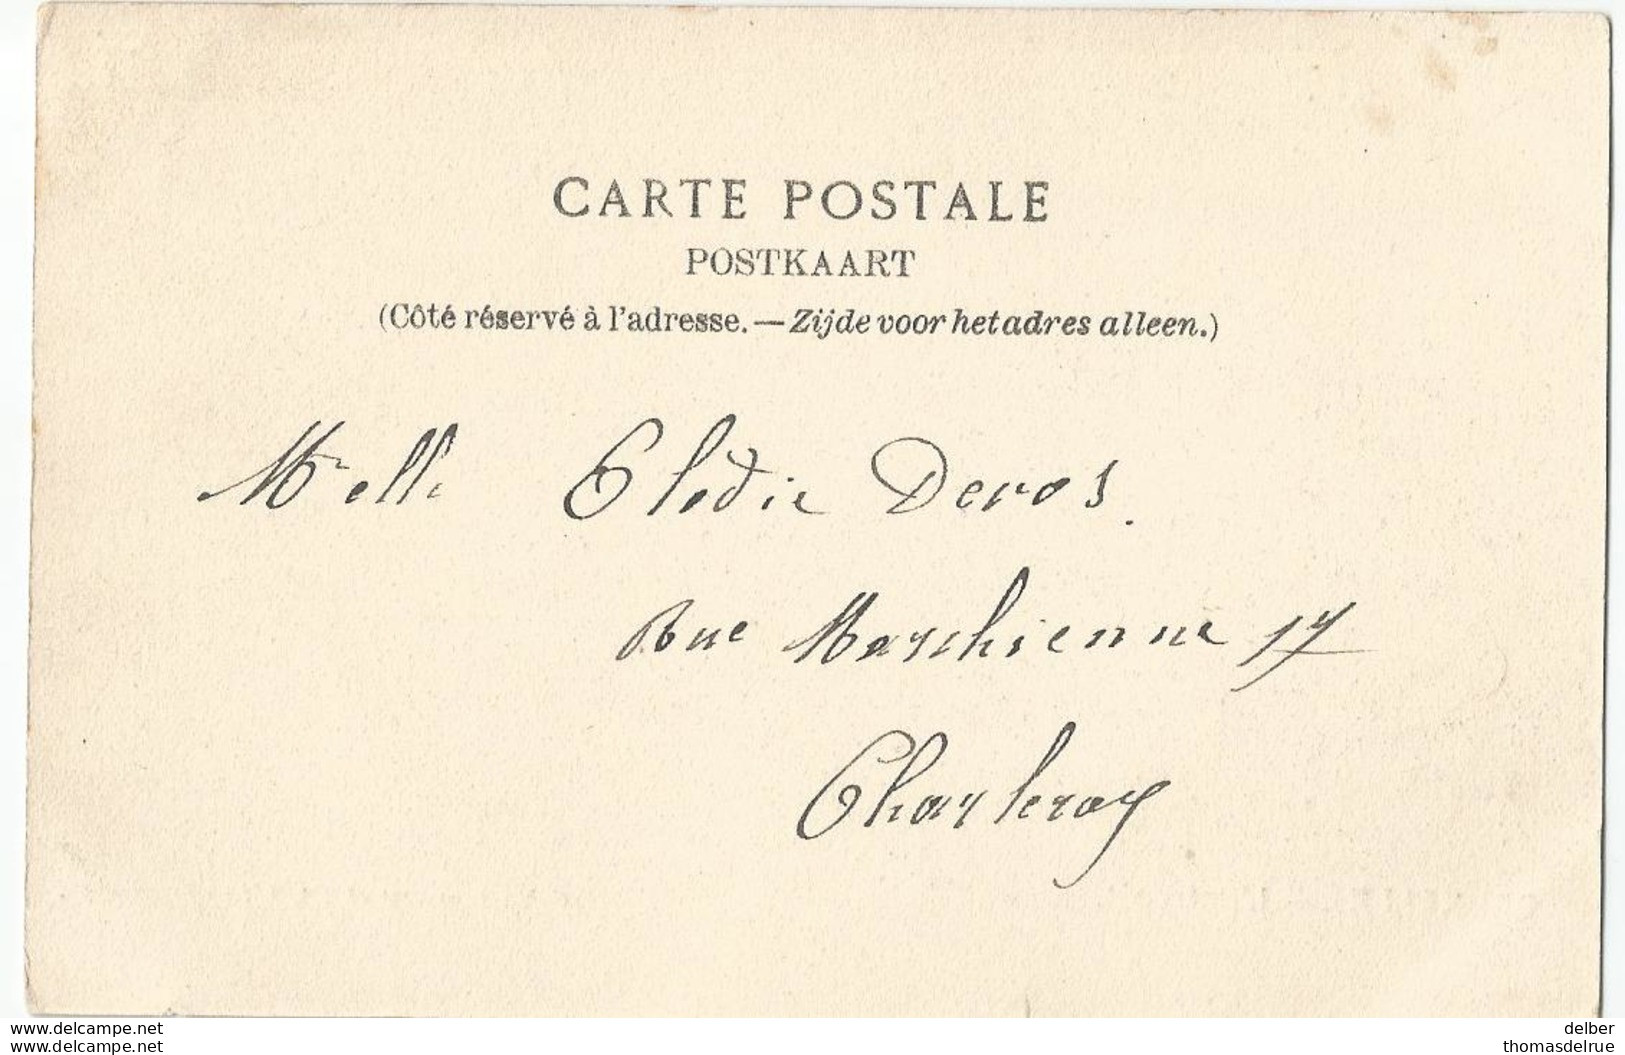 CARTE POSTALE
POSTKAART
(Côté réservé à l'adresse. — Zijde voor het adres alleen.)
Melle Elodie Devos.
Rue Marchienne 17
Charleroy
www.delcampe.net delber
www.delcampe.net thomasdelrue